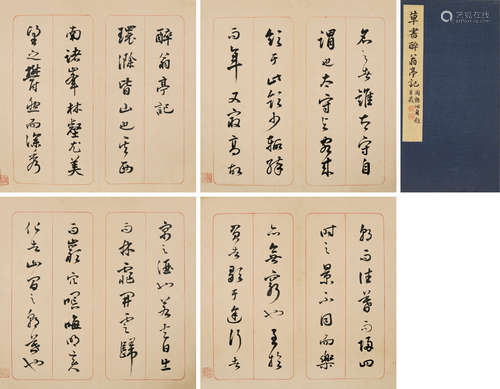 草書醉翁亭記
醉翁亭記
環滁皆山也其西
南諸峯林壑尤美
望之蔚然而深秀
名之者誰太守自
謂也太守與客來
飲于此飲少輒醉
而年又最高故
寓之酒也若夫日出
而林霏開雲歸
而巖穴暝晦明變
化者山間之朝暮也
朝而往暮而歸四
時之景不同而樂
亦無窮也至於
負者歌于途行者